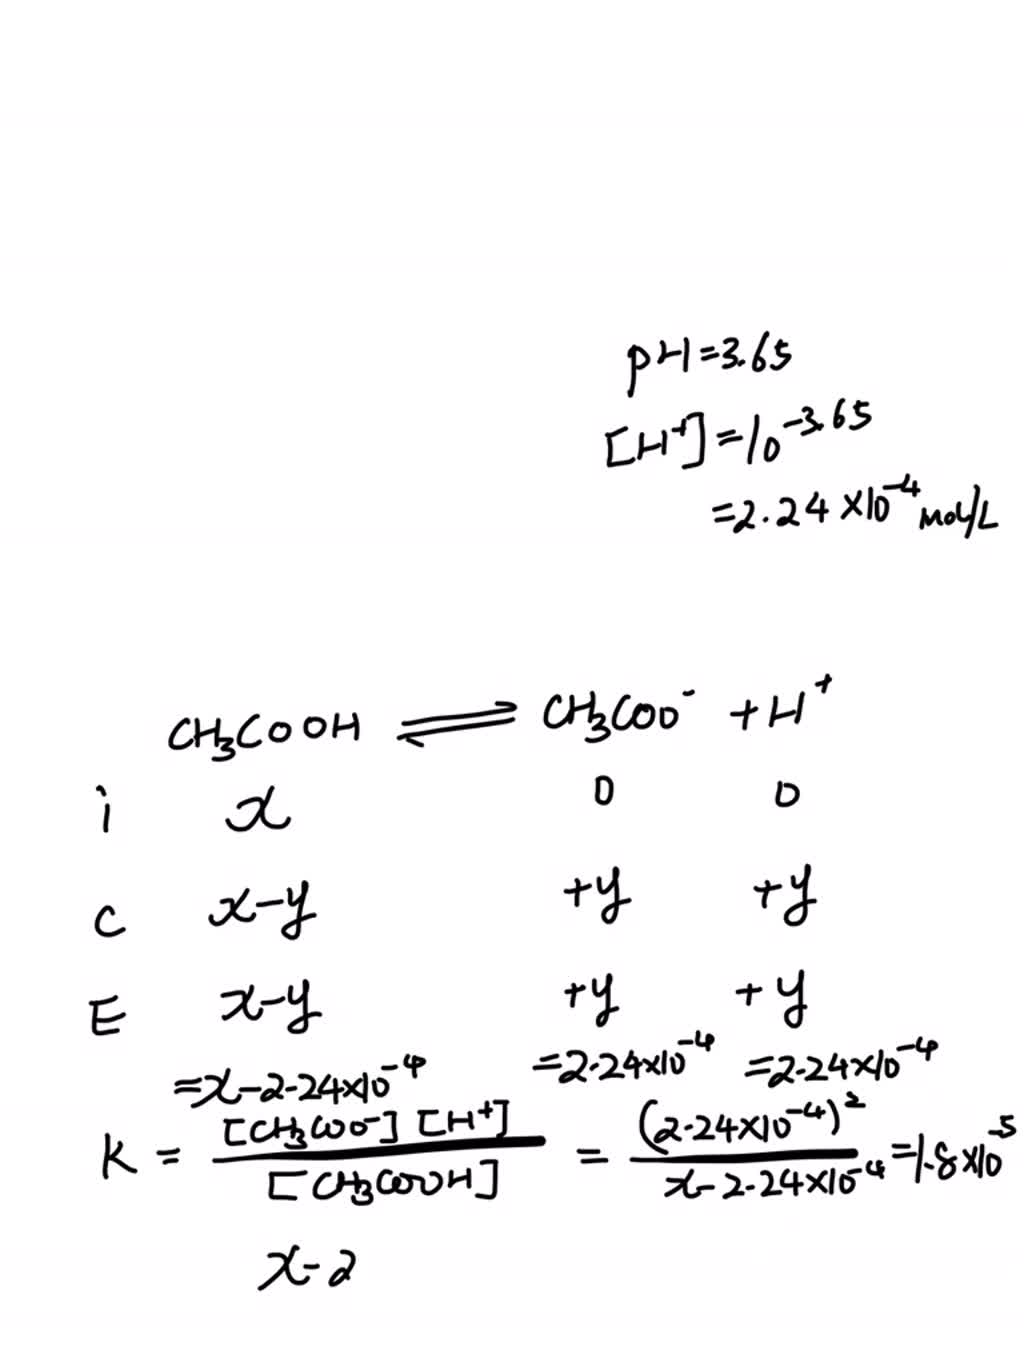 pH=3.65
[H⁺]=10⁻³·⁶⁵
=2.24×10⁻⁴mol/L
CH₃COOH ⇌ CH₃COO⁻ +H⁺
i x 0 0
C x-y +y +y
E x-y +y +y
=x-2.24×10⁻⁴ =2.24×10⁻⁴ =2.24×10⁻⁴
K = [CH₃COO⁻] [H⁺] / [CH₃COOH] = (2.24×10⁻⁴)² / x-2.24×10⁻⁴ =1.8×10⁻⁵
x-2